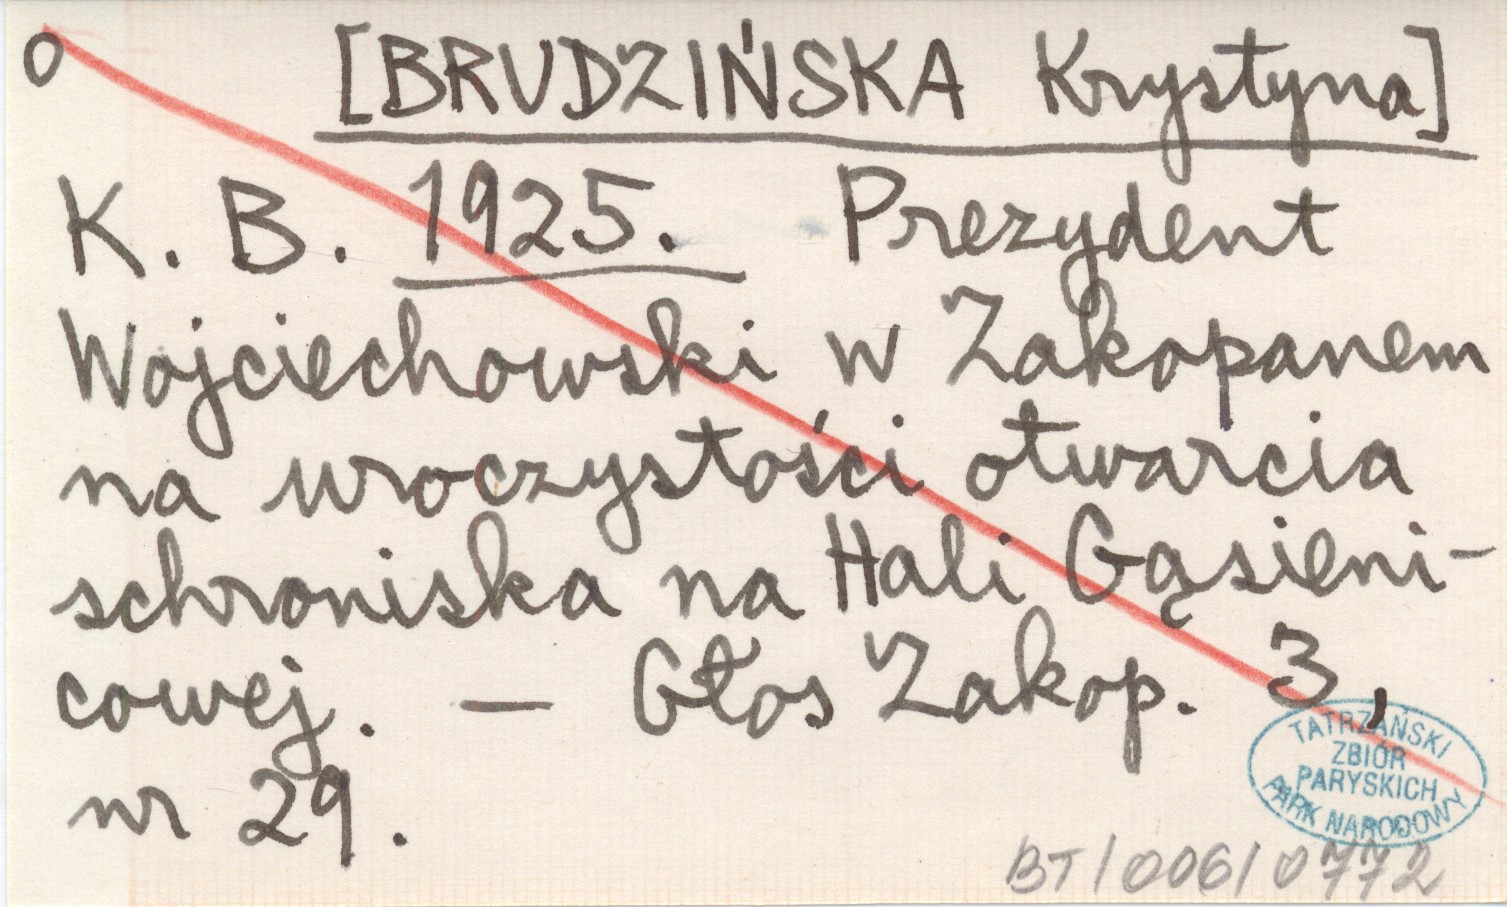 o [BRUDZIŃSKA Krystyna]
K. B. 1925. Prezydent
Wojciechowski w Zakopanem
na uroczystości otwarcia
schroniska na Hali Gąsieni-
cowej. — Głos Zakop. 3,
nr 29.
TATRZAŃSKI
ZBIÓR
PARYSKICH
PARK NARODOWY
BT/006/0772